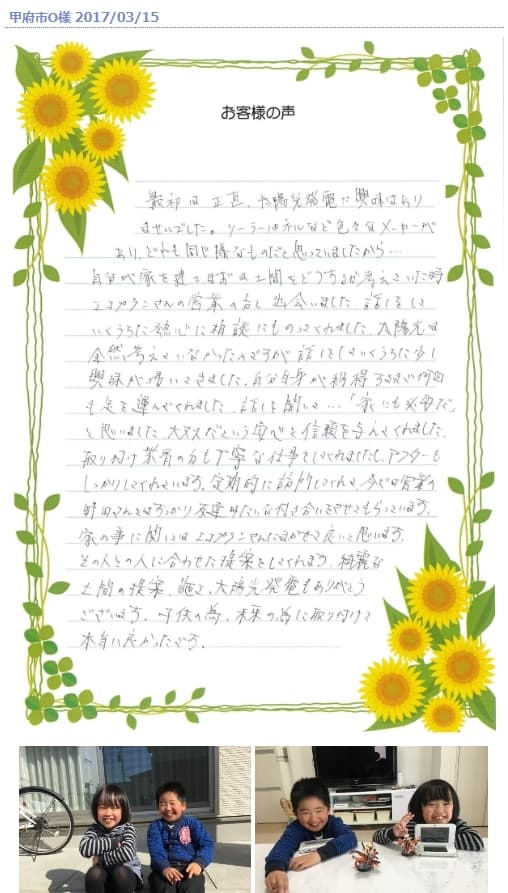 甲府市O様 2017/03/15
お客様の声
最初は正直、太陽光発電に興味はあり
ませんでした。ソーラーパネルなど色々なメーカーが
あり、どれも同じ様なものだと思っていましたから…
自分が家を建てまだの土間をどうするか考えていた時
エコプランさんの営業の方と出会いました。話しをして
いくうちに熱心に相談にものってくれました。太陽光は
全然考えていなかったのですが話しをしていくうちに少し
興味が湧いてきました。自分自身が納得するまで何回
も足を運んでくれました。話しを聞いて…「家にも必要だ」
と思いました。大丈夫だという安心と信頼を与えてくれました。
取り付け業者の方も丁寧な仕事をしてくれましたし、アフターも
しっかりしてくれています。定期的に訪問してくれて、今では営業の
野田さんとはすっかり友達みたいな付き合いをさせてもらっています。
家の事に関してはエコプランさんにまかせて良いと思います。
その人その人に合わせた提案をしてくれます。綺麗な
土間の提案、施工、太陽光発電もありがとう
ございます。子供の為、未来の為に取り付けて
本当に良かったです。